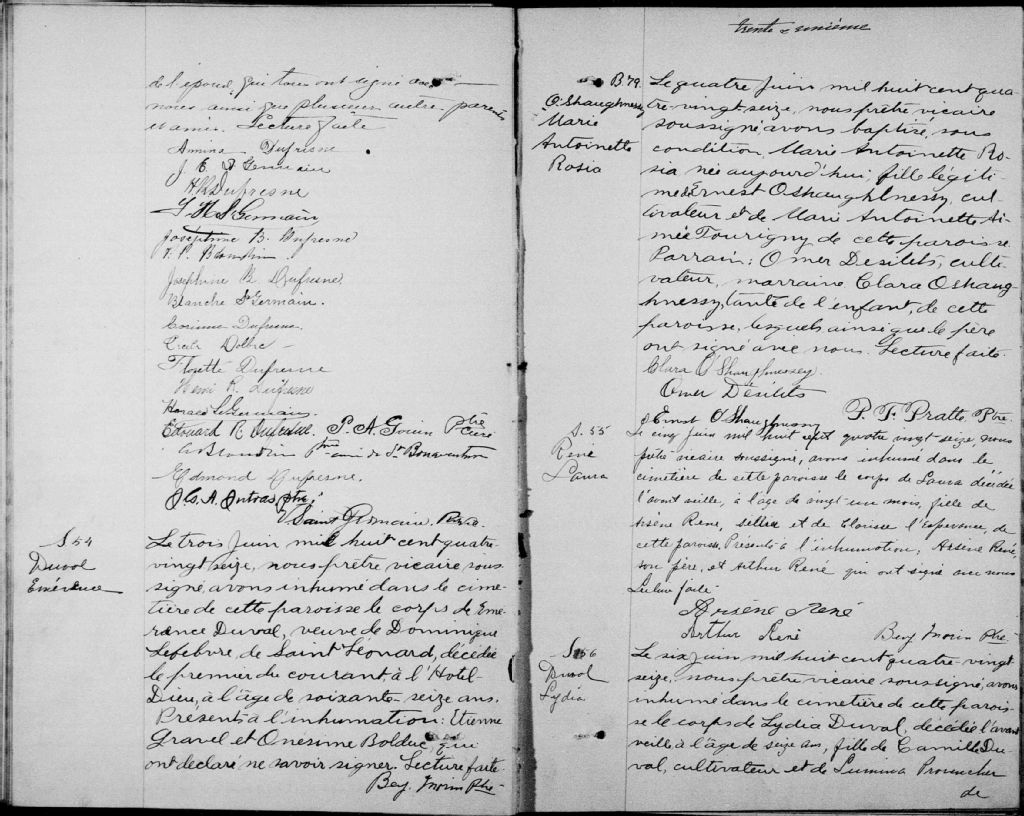 de l'époux, qui tous ont signé avec
nous ainsi que plusieurs autres parents
et amis. Lecture faite
Amina Dufresne
J. E. St Germain
H. R. Dufresne
J H St Germain
Josephine B. Dufresne
F. P. Blondin
Josephine R. Dufresne
Blanche St Germain.
Corinne Dufresne
Dufresne
Henri R. Dufresne
Horace St Germain.
Edouard R. Dufresne. P. A. Gouin Ptre curé
Blondin Ptre curé de St Bonaventure
Edmond Dufresne.
ptre
Saint Germain
S 54
Duval
Emérence
Le trois Juin mil huit cent quatre-
vingt seize, nous prêtre vicaire sous-
signé, avons inhumé dans le cime-
tière de cette paroisse le corps de Eme-
rance Duval, veuve de Dominique
Lefebvre, de Saint Léonard, décédée
le premier du courant à l'Hotel-
Dieu, à l'âge de soixante-seize ans.
Présents à l'inhumation: Etienne
Gravel et Onésime Bolduc, qui
ont declaré ne savoir signer. Lecture faite.
Benj. Morin Ptre
trente & unième
B 79
O'Shaughnessy
Marie
Antoinette
Rosia
Le quatre Juin mil huit cent qua-
tre-vingt seize, nous prêtre, vicaire
soussigné, avons baptisé, sous
condition, Marie Antoinette Ro-
sia, née aujourd'hui, fille légiti-
me de Ernest O'Shaughnessy, cul-
tivateur et de Marie Antoinette Ai-
mée Tourigny de cette paroisse.
Parrain: Omer Desilets, culti-
vateur, marraine Clara O'Shaug-
hnessy, tante de l'enfant, de cette
paroisse, lesquels ainsi que le père
ont signé avec nous. Lecture faite.
Clara O'Shaughnessey.
Omer Désilets
Ernest O'Shaughnessy P. F. Pratte, Ptre.
S. 55
René
Laura
Le cinq Juin mil huit cent quatre vingt seize, nous
prêtre vicaire soussigné, avons inhumé dans le
cimetière de cette paroisse le corps de Laura décédée
l'avant veille, à l'âge de vingt-un mois, fille de
Arsène René, sellier et de Clarisse l'Espérance, de
cette paroisse. Présents à l'inhumation, Arsène René,
son père, et Arthur René qui ont signé avec nous
Lecture faite
Arsène René
Arthur René Benj Morin Ptre
S 56
Duval
Lydia
Le six Juin mil huit cent quatre-vingt
seize, nous prêtre vicaire soussigné, avons
inhumé dans le cimetière de cette parois-
se le corps de Lydia Duval, décédée l'avant
veille à l'âge de seize ans, fille de Camille Du-
val, cultivateur et de Lumina Provencher
de